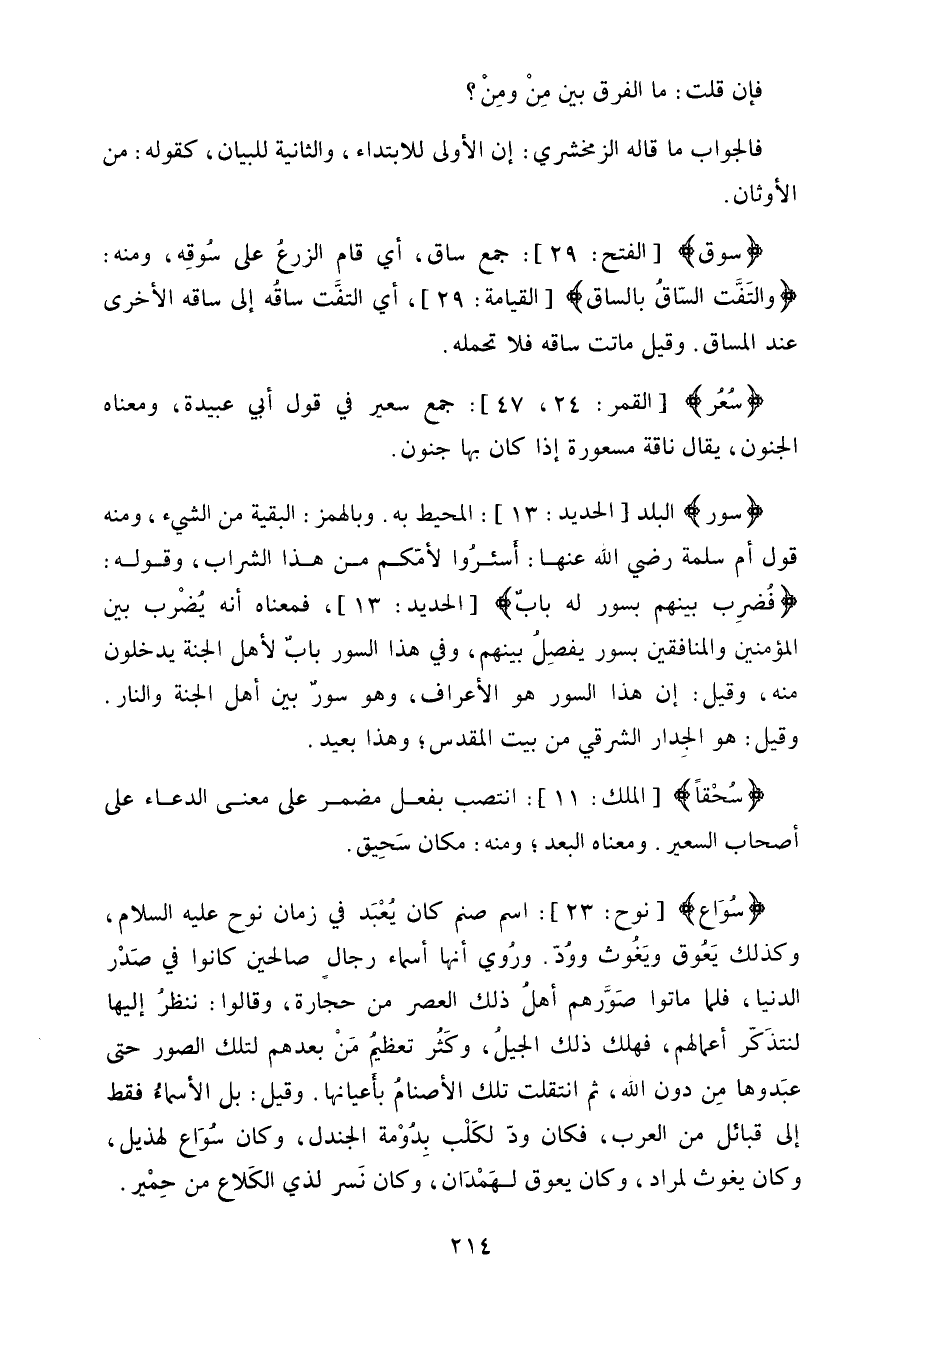 فإن قلت: ما الفرق بين مِنْ ومِنْ؟
فالجواب ما قاله الزمخشري: إن الأولى للابتداء، والثانية للبيان، كقوله: من
الأوثان.
﴿سوق﴾ [الفتح: ٢٩]: جمع ساق، أي قام الزرعُ على سُوقِه، ومنه:
﴿والتَفَّت السّاقُ بالساق﴾ [القيامة: ٢٩]، أي التفَّت ساقُه إلى ساقه الأخرى
عند المساق. وقيل ماتت ساقه فلا تحمله.
﴿سُعُر﴾ [القمر: ٢٤، ٤٧]: جمع سعير في قول أبي عبيدة، ومعناه
الجنون، يقال ناقة مسعورة إذا كان بها جنون.
﴿سور﴾ البلد [الحديد: ١٣]: المحيط به. وبالهمز: البقية من الشيء، ومنه
قول أم سلمة رضي الله عنها: أسئرُوا لأمّكم من هذا الشراب، وقوله:
﴿فُضرِب بينهم بسور له بابٌ﴾ [الحديد: ١٣]، فمعناه أنه يُضْرب بين
المؤمنين والمنافقين بسور يفصِلُ بينهم، وفي هذا السور بابٌ لأهل الجنة يدخلون
منه، وقيل: إن هذا السور هو الأعراف، وهو سورٌ بين أهل الجنة والنار.
وقيل: هو الجِدار الشرقي من بيت المقدس؛ وهذا بعيد.
﴿سُحْقاً﴾ [الملك: ١١]: انتصب بفعل مضمر على معنى الدعاء على
أصحاب السعير. ومعناه البعد؛ ومنه: مكان سَحِيق.
﴿سُوَاع﴾ [نوح: ٢٣]: اسم صنم كان يُعْبَد في زمان نوح عليه السلام،
وكذلك يَعُوق ويَغُوث ووُدّ. ورُوي أنها أسماء رجالٍ صالحين كانوا في صَدْر
الدنيا، فلما ماتوا صَوَّرهم أهلُ ذلك العصر من حجارة، وقالوا: ننظرُ إليها
لنتذكّر أعمالهم، فهلك ذلك الجيلُ، وكَثُر تعظيمُ مَنْ بعدهم لتلك الصور حتى
عبَدوها مِن دون الله، ثم انتقلت تلك الأصنامُ بأَعيانها. وقيل: بل الأسماءُ فقط
إلى قبائل من العرب، فكان ودّ لكَلْب بِدُوْمة الجندل، وكان سُوَاع لهذيل،
وكان يغوث لمراد، وكان يعوق لهَمْدَان، وكان نَسر لذي الكَلاع من حِمْير.
٢١٤